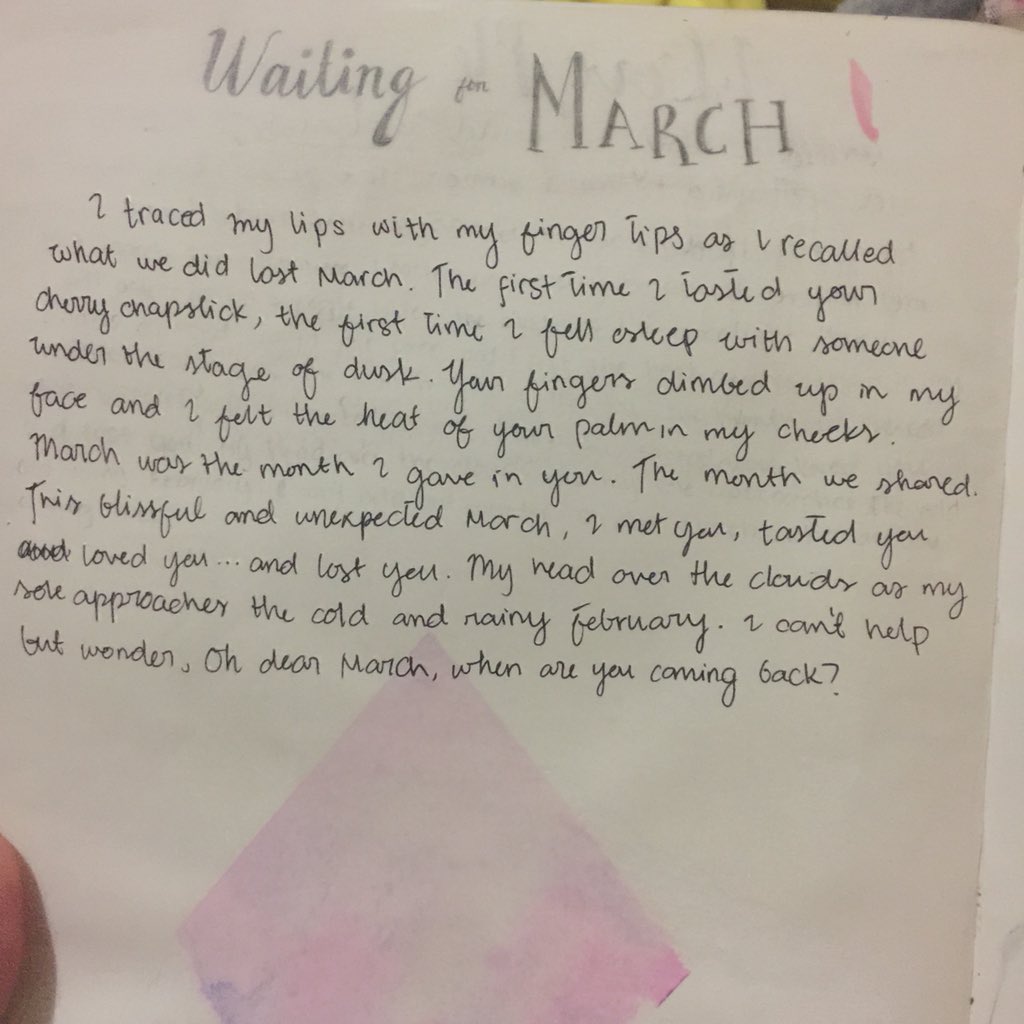 Waiting for MARCH
I traced my lips with my finger tips as I recalled
what we did last March. The first time I tasted your
cherry chapstick, the first time I fell asleep with someone
under the stage of dusk. Your fingers climbed up in my
face and I felt the heat of your palm in my cheeks.
March was the month I gave in you. The month we shared.
This blissful and unexpected March, I met you, tasted you
loved you... and lost you. My head over the clouds as my
sole approaches the cold and rainy February. I can't help
but wonder, Oh dear March, when are you coming back?